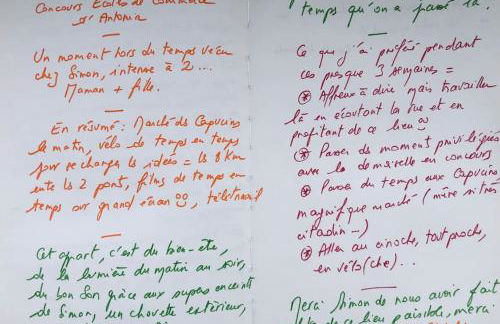 Concours Ecoles de Commerce
Antonia
Un moment hors du temps vécu
chez Simon, intense à 2...
Maman + fille.
En résumé : Marché des Capucins
le matin, vélo de temps en temps
pour recharger les idées = les 8 km
entre les 2 ponts, films de temps en
temps sur grand écran, télétravail
Cet apart, c'est du bien-être,
de la lumière du matin au soir,
du bon son grâce aux supers enceintes
de Simon, un chouette extérieur,
temps qu'on a passé là.
Ce que j'ai préféré pendant
ces presque 3 semaines =
* Affreux à dire mais travailler
là en écoutant la rue et en
profitant de ce lieu
* Passer des moments privilégiés
avec la demoiselle en concours
* Passer du temps aux Capucins
magnifique marché (mère et très
citadin -)
* Aller au cinoche, tout proche,
en vélo(che)...
Merci Simon de nous avoir fait
de ce lieu paisible, merci